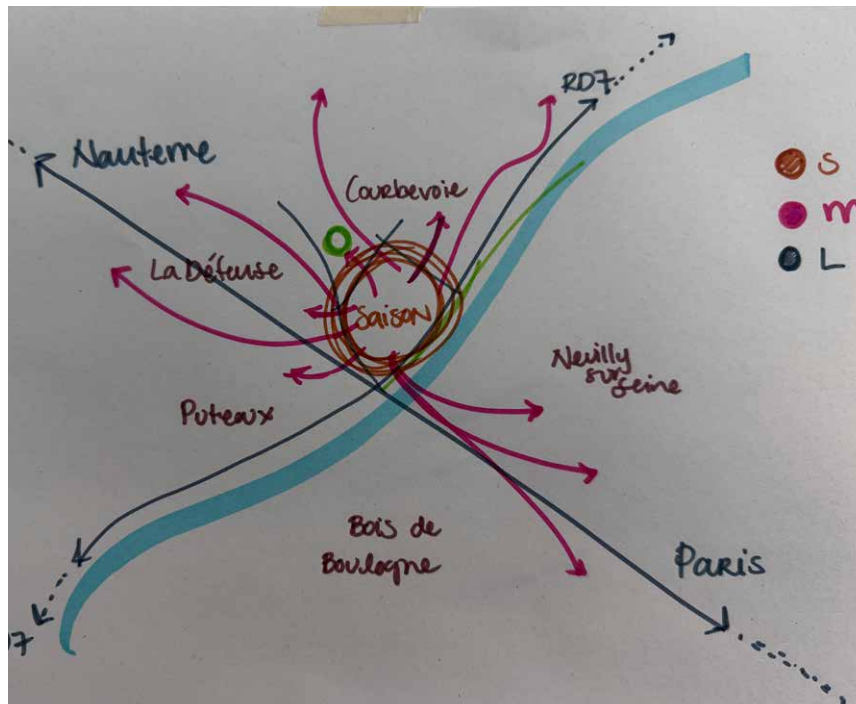 RD7
Nauterre
S
Courbevoie
M
La Défense
L
Saison
Neuilly
sur
Seine
Puteaux
Bois de
Boulogne
Paris
D7